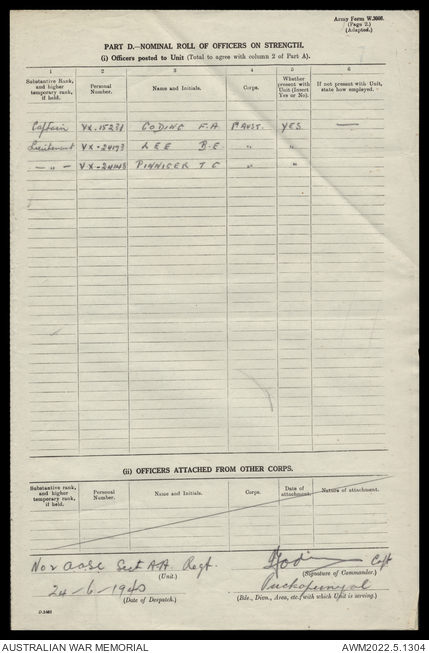 Army Form W.3008.
(Page 2.)
(Adapted.)
PART D.—NOMINAL ROLL OF OFFICERS ON STRENGTH.
(i) Officers posted to Unit (Total to agree with column 2 of Part A).
1 2 3 4 5 6
Substantive Rank, and higher temporary rank, if held. Personal Number. Name and Initials. Corps. Whether present with Unit (Insert Yes or No). If not present with Unit, state how employed.
Captain VX.15231 GODINE F.A 1st AUST. YES —
Lieutenant VX-24193 LEE B.E " "
— " — VX-24148 PINNIGER T E " "
(ii) OFFICERS ATTACHED FROM OTHER CORPS.
Substantive rank, and higher temporary rank, if held. Personal Number. Name and Initials. Corps. Date of attachment. Nature of attachment.
No 2 AASC Sect A.A. Regt. Capt
(Unit.) (Signature of Commander.)
24-6-1940 Puckapunyal
(Date of Despatch.) (Bde., Divn., Area, etc., with which Unit is serving.)
AUSTRALIAN WAR MEMORIAL AWM2022.5.1304